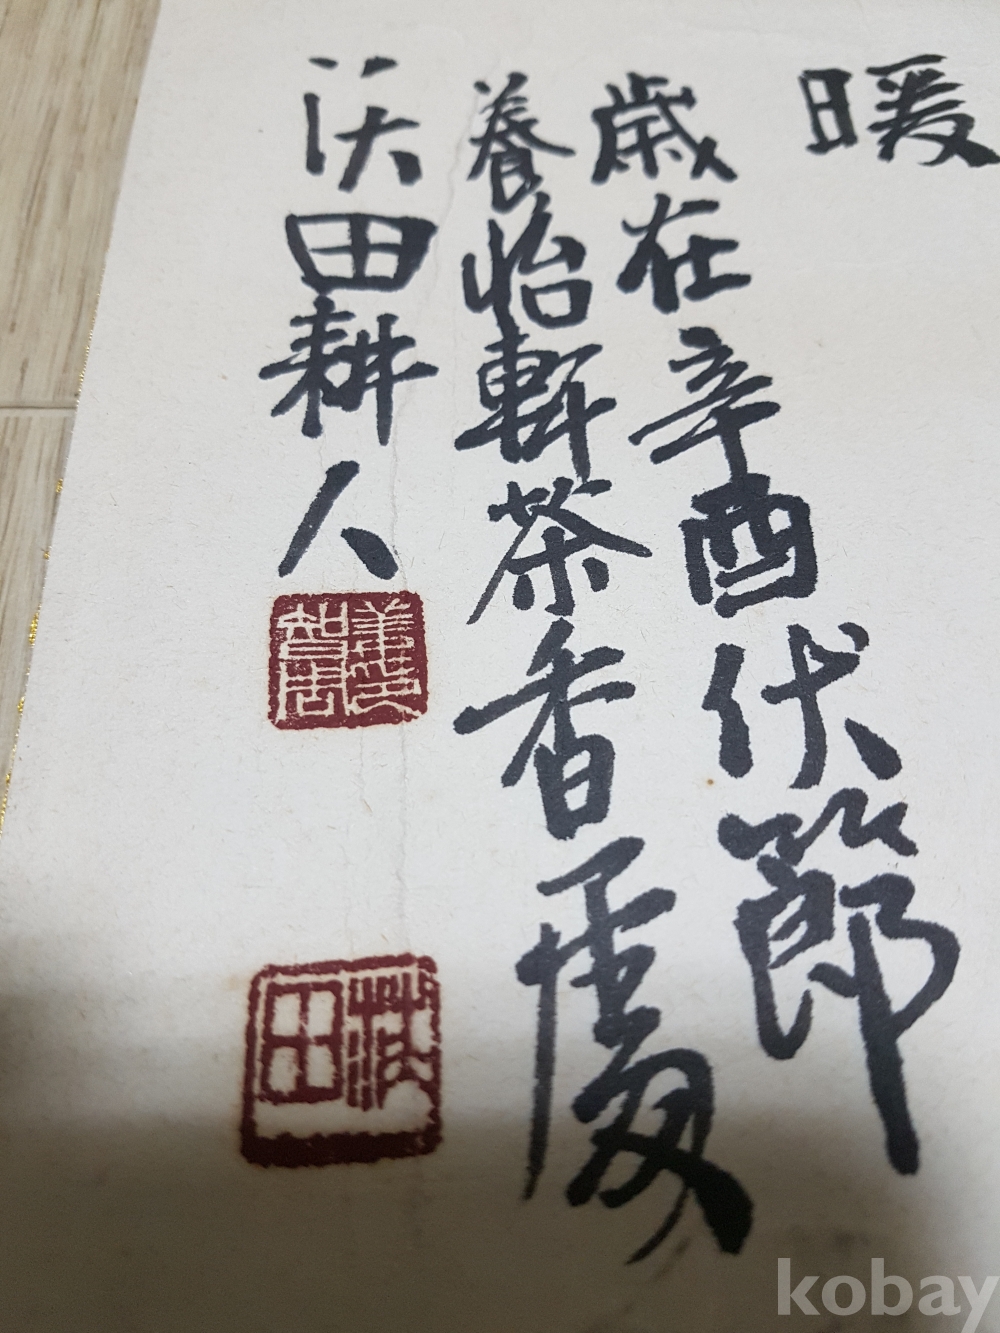 暖
歲在辛酉伏節
養怡軒茶香處
沃田耕人
沃田
kobay